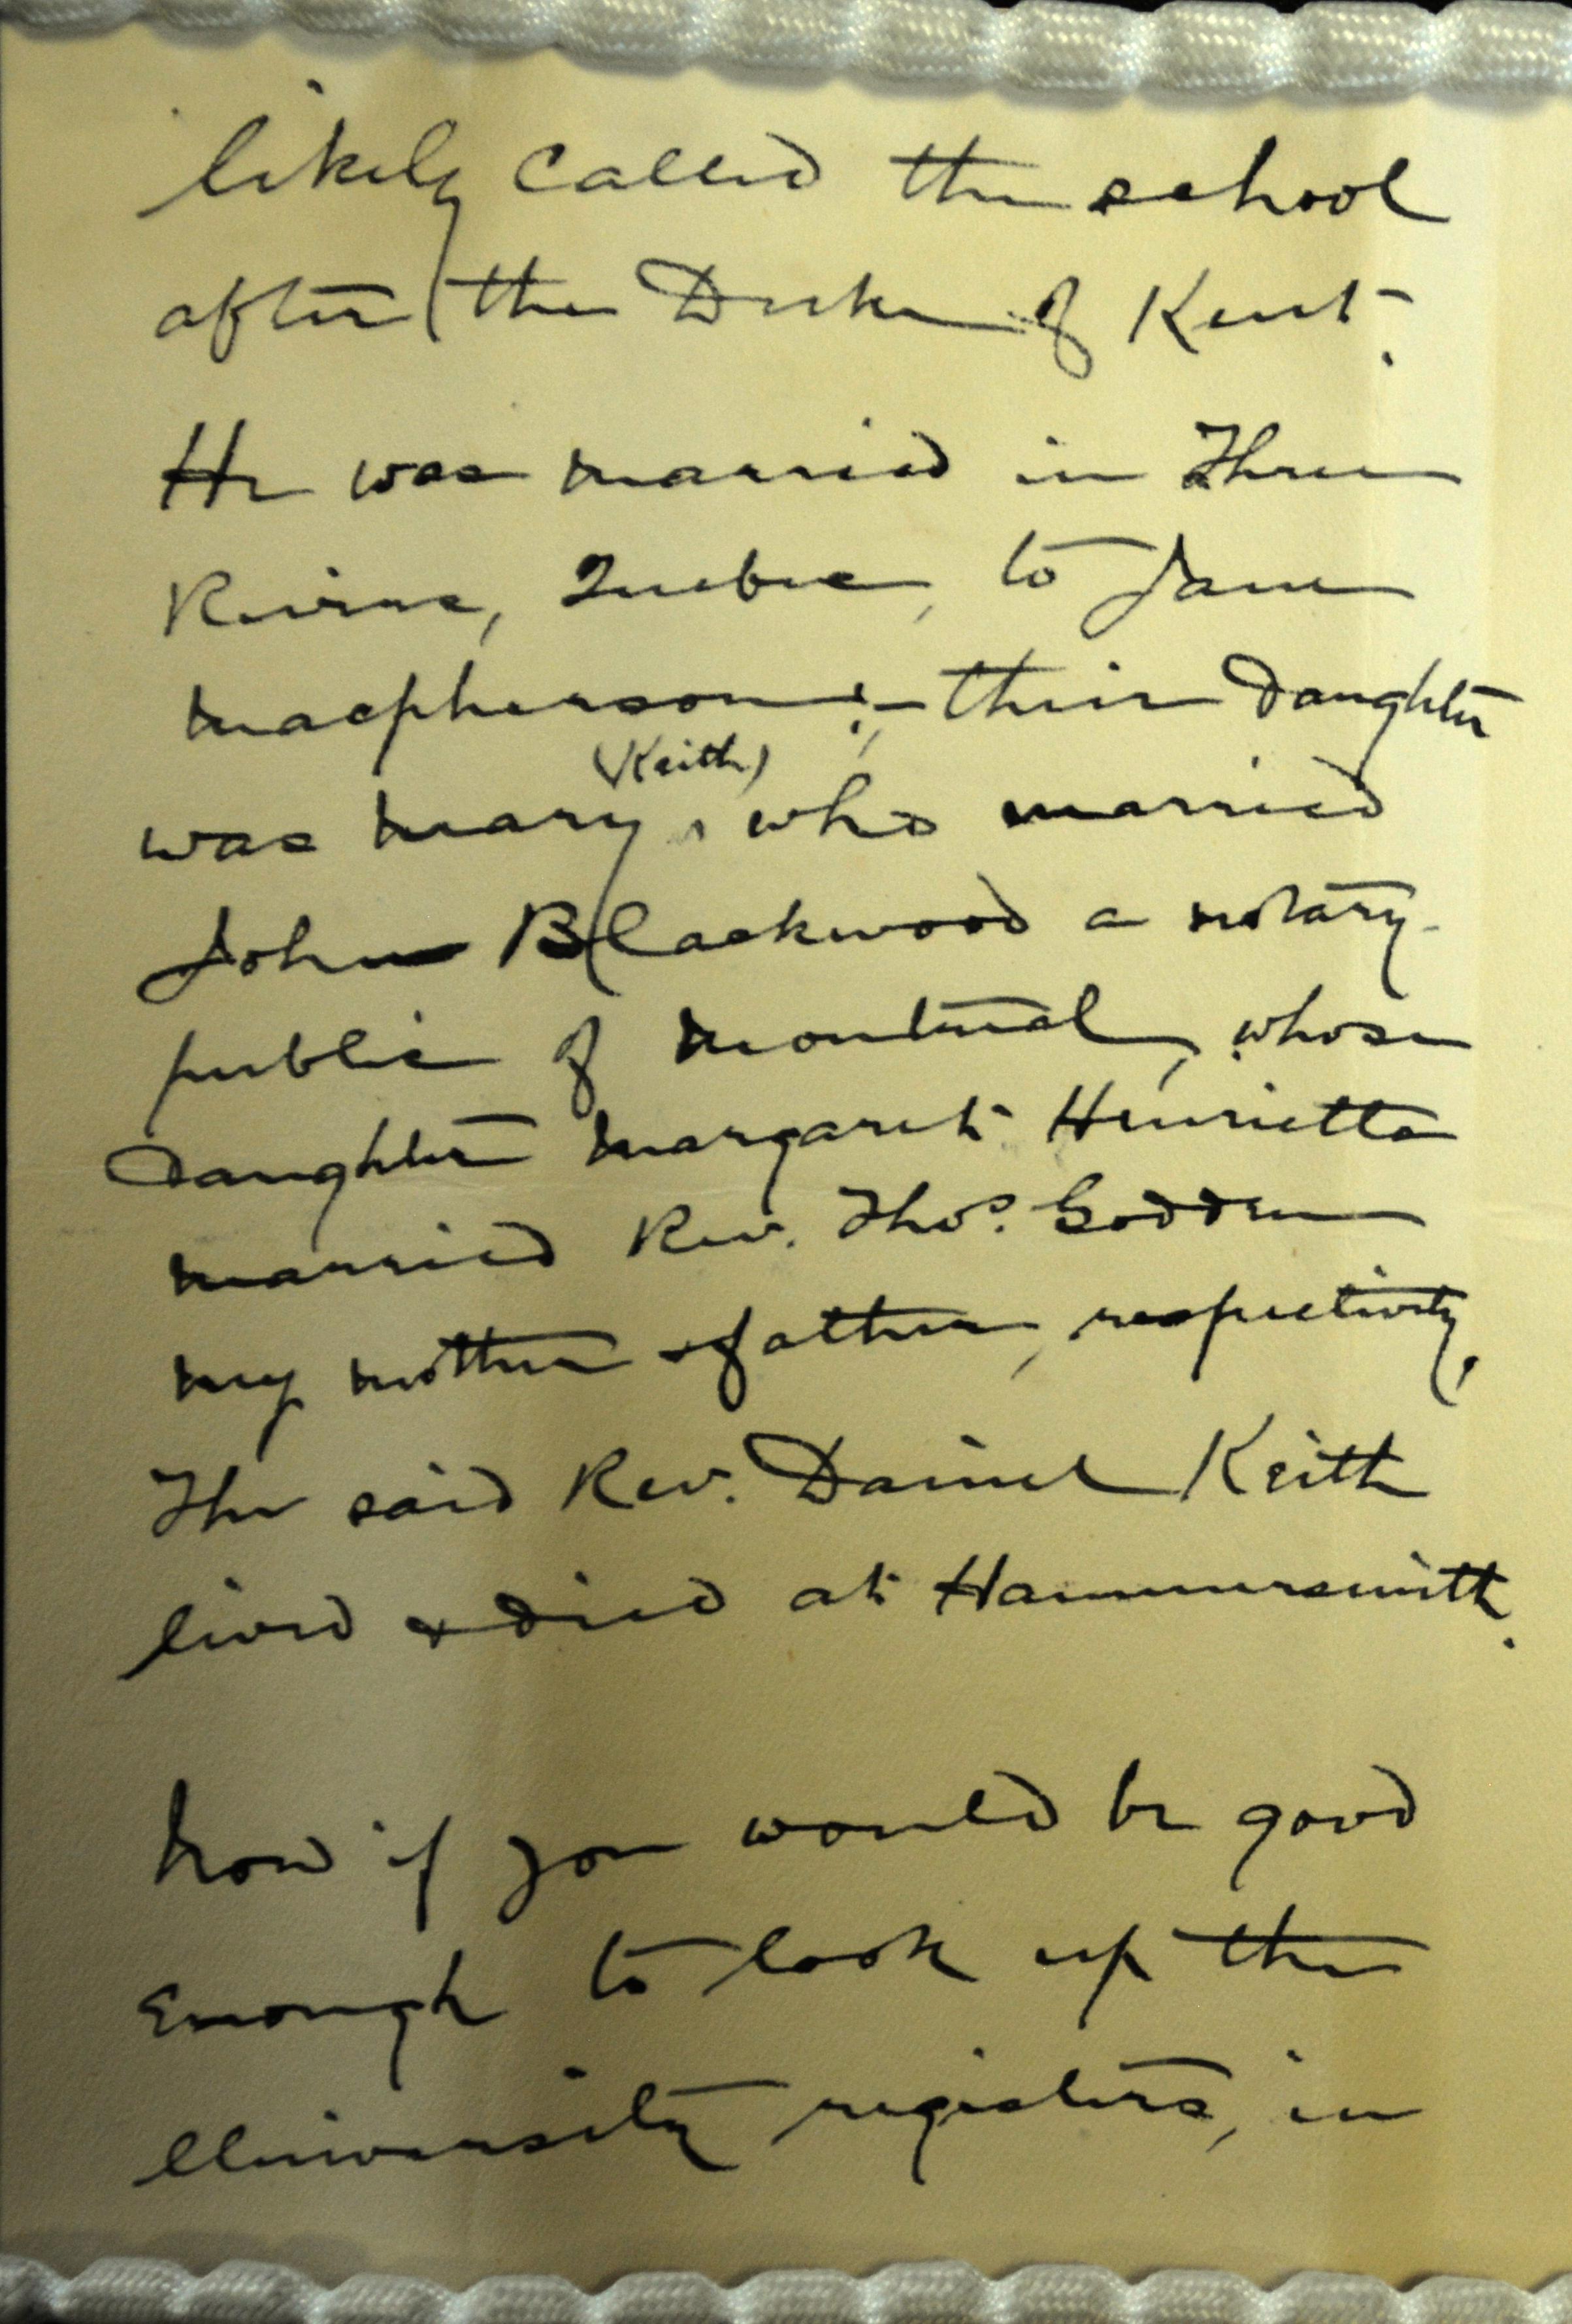 likely called the school
after the Duke of Kent.
He was married in Three
Rivers, Quebec, to Jane
Macpherson; - their daughter
was Mary (Keith), who married
John Blackwood a notary-
public of Montreal, whose
daughter Margaret Henrietta
married Rev. Thos. Godden
my mother & father, respectively.
The said Rev. Daniel Keith
lived & died at Hammersmith.
Now if you would be good
enough to look up the
University registers, in